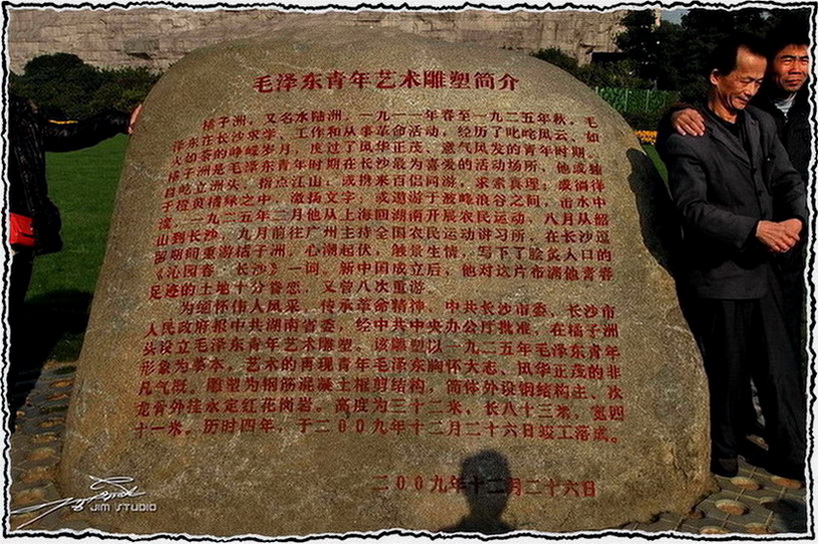 毛泽东青年艺术雕塑简介
橘子洲，又名水陆洲，一九一一年春至一九二五年秋，毛
泽东在长沙求学、工作和从事革命活动，经历了叱咤风云、如
火如荼的峥嵘岁月，度过了风华正茂、意气风发的青年时期。
橘子洲是毛泽东青年时期在长沙最为喜爱的活动场所，他或独
自屹立洲头，指点江山；或携来百侣同游，求索真理；或徜徉
于橙黄橘绿之中，激扬文字；或遨游于波峰浪谷之间，击水中
流。一九二五年二月他从上海回湖南开展农民运动，八月从韶
山到长沙，九月前往广州主持全国农民运动讲习所，在长沙逗
留期间重游橘子洲，心潮起伏，触景生情，写下了脍炙人口的
《沁园春·长沙》一词。新中国成立后，他对这片布满他青春
足迹的土地十分眷恋，又曾八次重游。
为缅怀伟人风采，传承革命精神，中共长沙市委、长沙市
人民政府报中共湖南省委，经中共中央办公厅批准，在橘子洲
头设立毛泽东青年艺术雕塑。该雕塑以一九二五年毛泽东青年
形象为摹本，艺术的再现青年毛泽东胸怀大志、风华正茂的非
凡气概。雕塑为钢筋混凝土框剪结构，简体外设钢结构主、次
龙骨外挂永定红花岗岩。高度为三十二米，长八十三米，宽四
十一米。历时四年，于二00九年十二月二十六日竣工落成。
二00九年十二月二十六日
JIM STUDIO